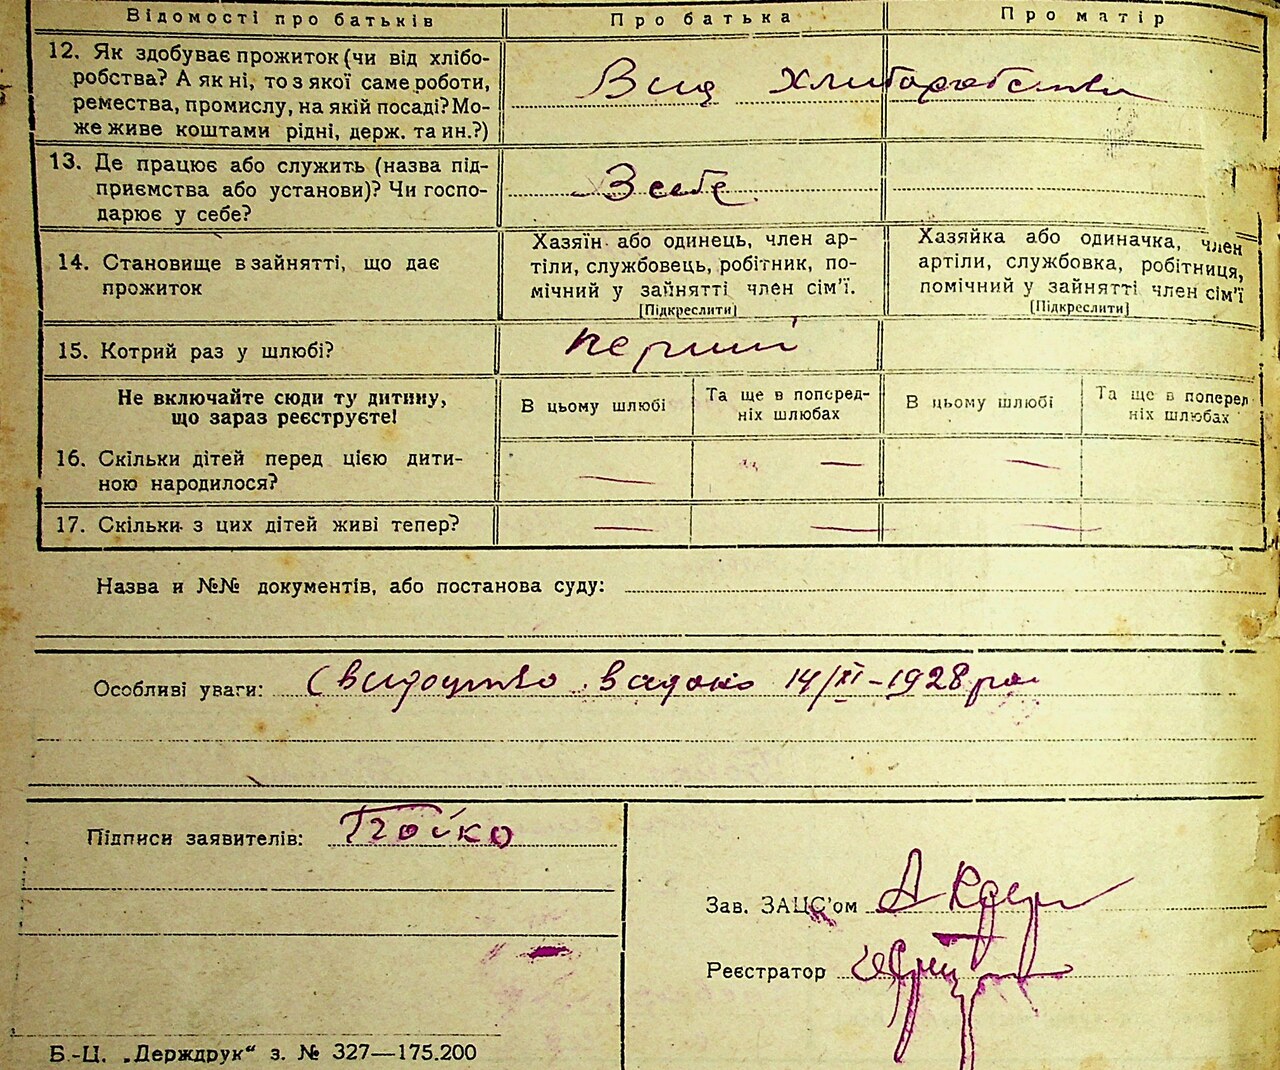 Відомості про батьків Про батька Про матір
12. Як здобуває прожиток (чи від хлібо-
робства? А як ні, то з якої саме роботи,
ремества, промислу, на якій посаді? Мо-
же живе коштами рідні, держ. та ин.?)
Вид хлиборобства
13. Де працює або служить (назва під-
приємства або установи)? Чи госпо-
дарює у себе?
В себе
14. Становище в зайнятті, що дає
прожиток
Хазяїн або одинець, член ар-
тіли, службовець, робітник, по-
мічний у зайнятті член сім'ї.
[Підкреслити]
Хазяйка або одиначка, член
артіли, службовка, робітниця,
помічний у зайнятті член сім'ї
[Підкреслити]
15. Котрий раз у шлюбі? перший
Не включайте сюди ту дитину,
що зараз реєструєте!
В цьому шлюбі
Та ще в поперед-
ніх шлюбах
В цьому шлюбі
Та ще в поперед
ніх шлюбах
16. Скільки дітей перед цією дити-
ною народилося?
— — —
17. Скільки з цих дітей живі тепер?
— — —
Назва и №№ документів, або постанова суду:
Особливі уваги: Свидоцтво видано 14/XI-1928 ро
Підписи заявителів: Бойко
Зав. ЗАЦС'ом
Реєстратор
Б.-Ц. „Держдрук“ з. № 327—175.200